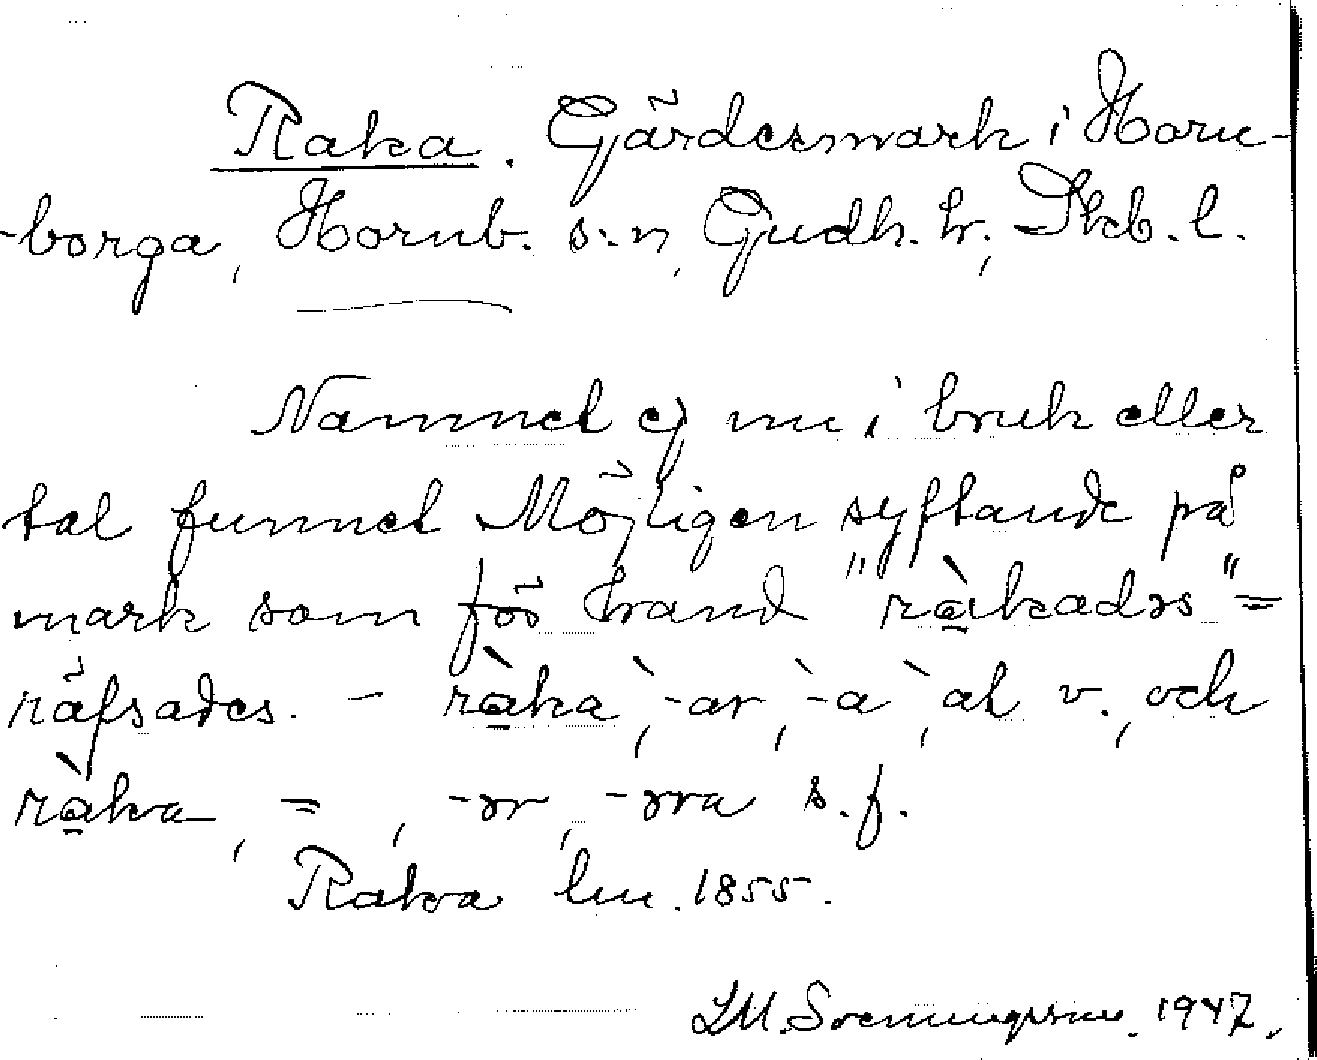 Raka. Gärdesmark i Horn-
-borga, Hornb. s:n, Gudh. hr, Skb. l.
Namnet ej nu i bruk eller
tal funnet Möjligen syftande på
mark som för hand "ràkadəs" =
räfsades. - ràka, -ar, -a, at v., och
ràka, =, -ər, -əra s.f.
Raka lm. 1855.
1947.